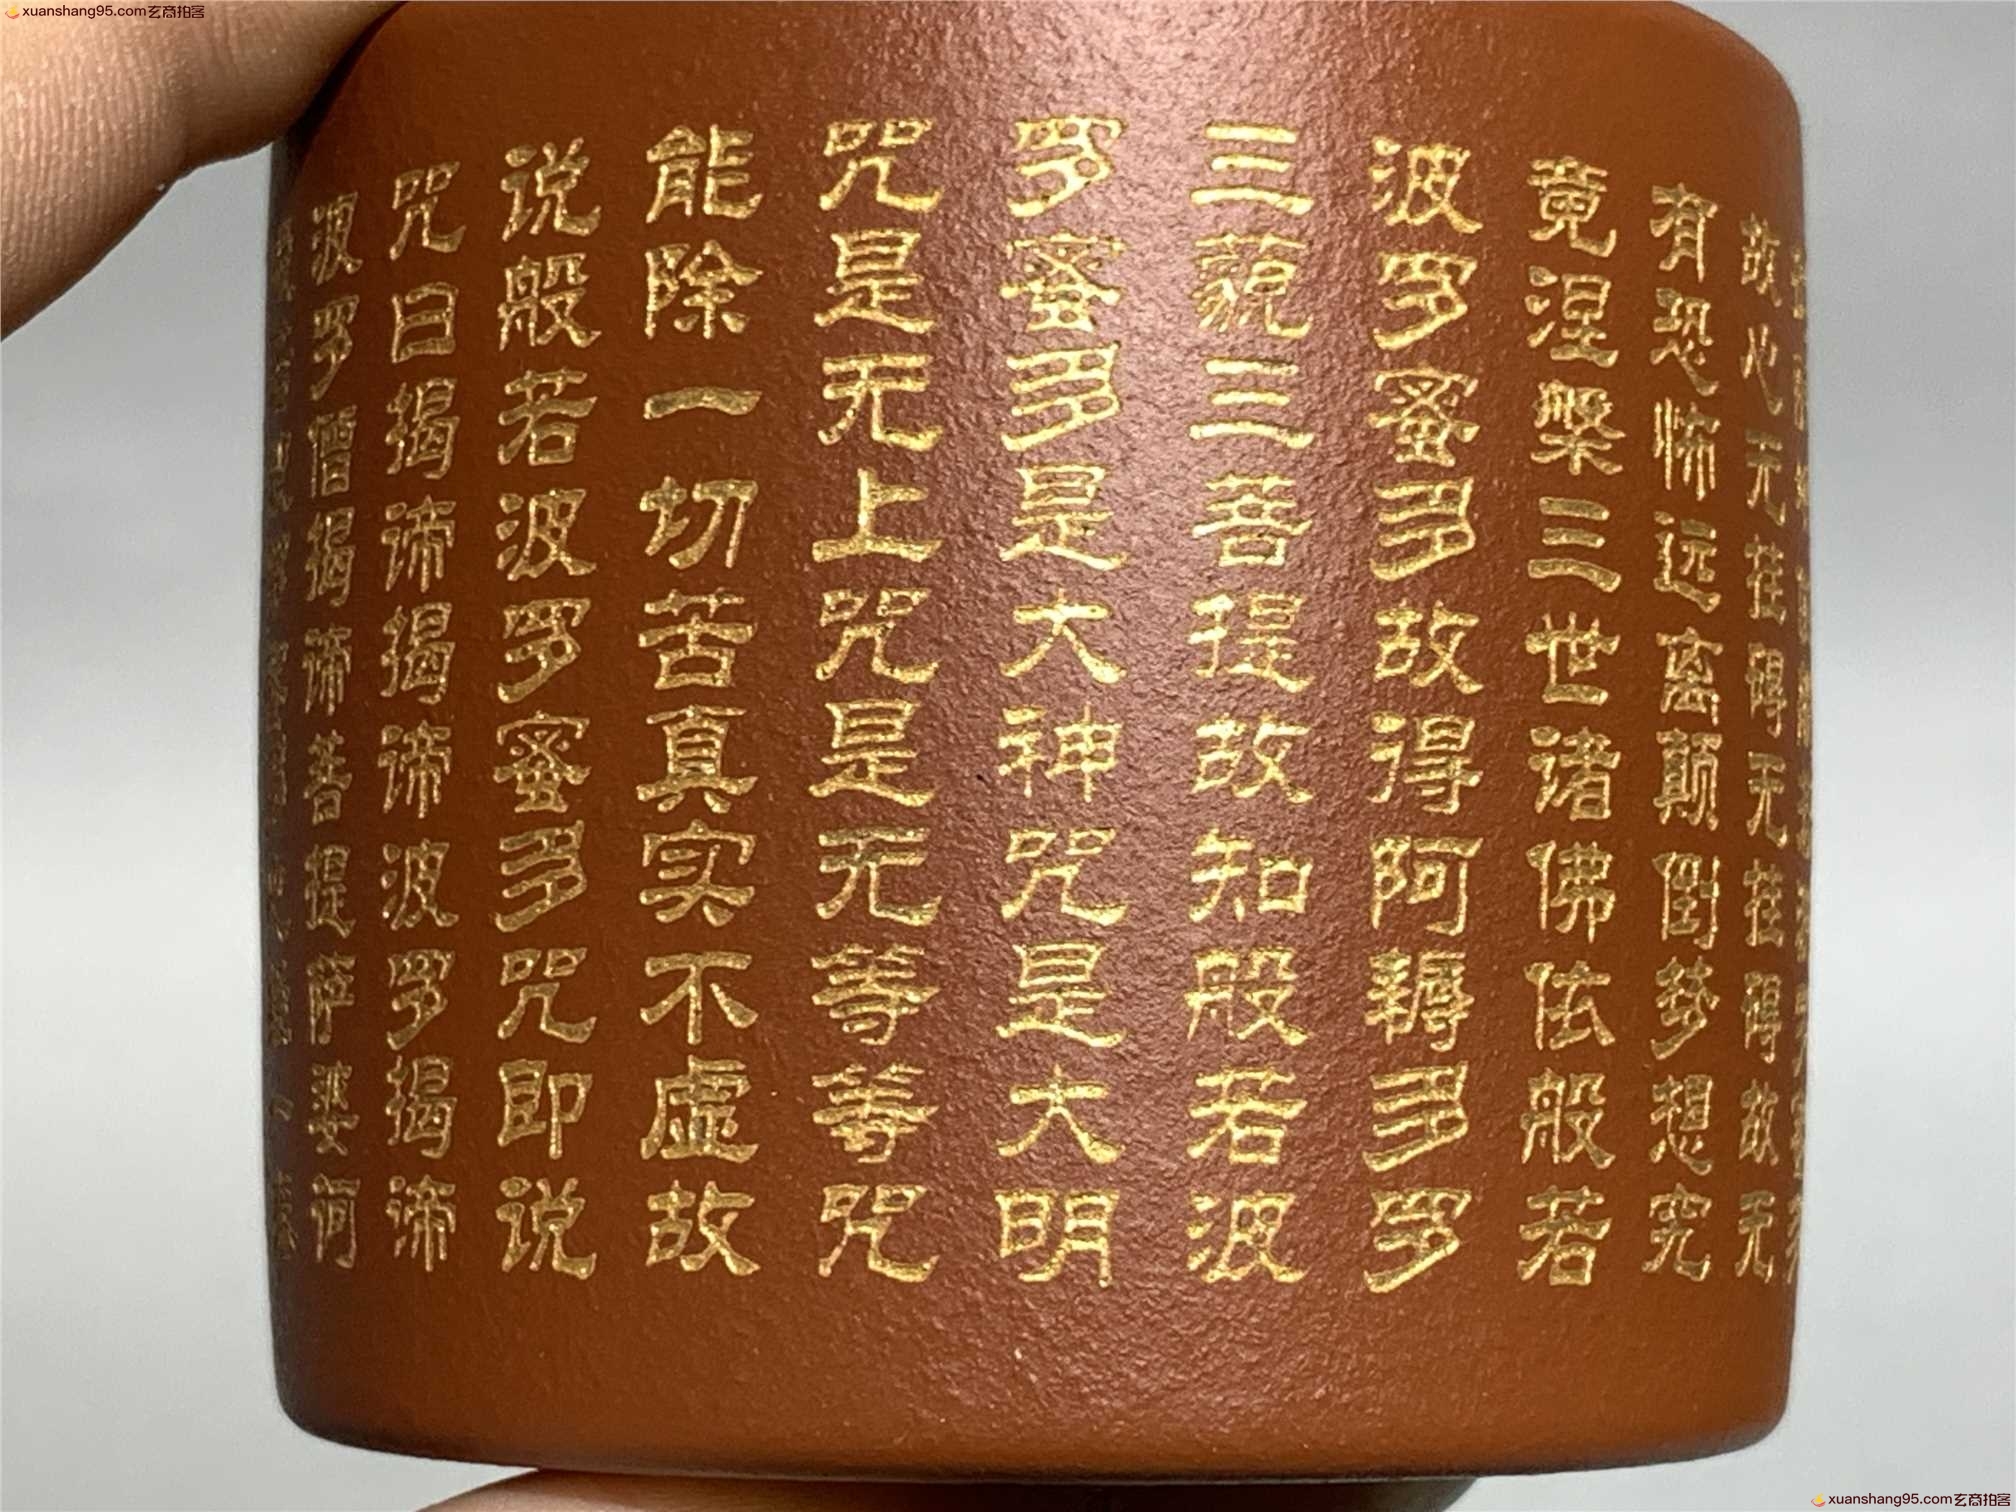 xuanshang95.com玄商拍客
故心无挂碍无挂碍故无
有恐怖远离颠倒梦想究
竟涅槃三世诸佛依般若
波罗蜜多故得阿耨多罗
三藐三菩提故知般若波
罗蜜多是大神咒是大明
咒是无上咒是无等等咒
能除一切苦真实不虚故
说般若波罗蜜多咒即说
咒曰揭谛揭谛波罗揭谛
波罗僧揭谛菩提萨婆诃
xuanshang95.com玄商拍客